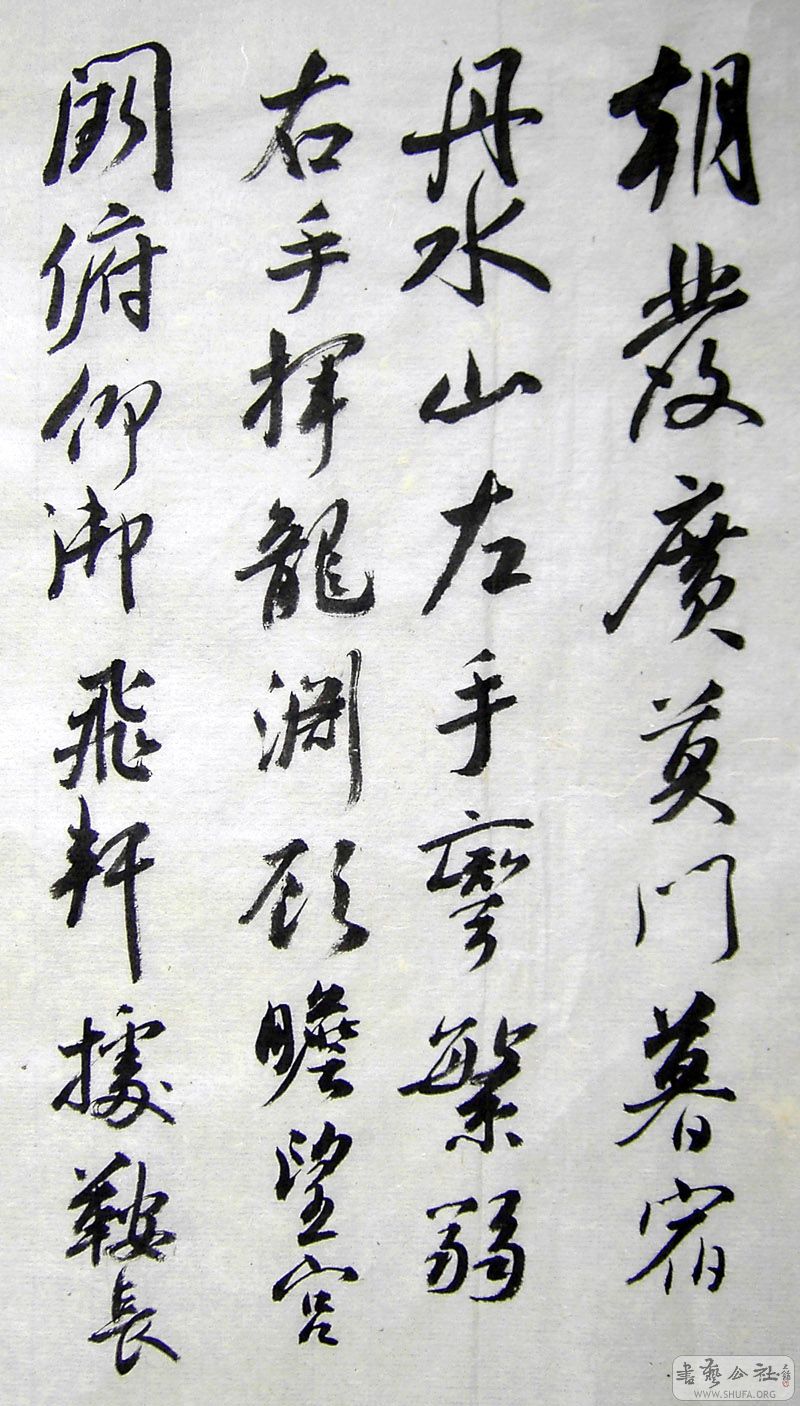 朝發廣莫門暮宿
丹水山左手彎繁弱
右手揮龍淵顧瞻望宮
闕俯仰御飛軒據鞍長
書藝公社
WWW.SHUFA.ORG